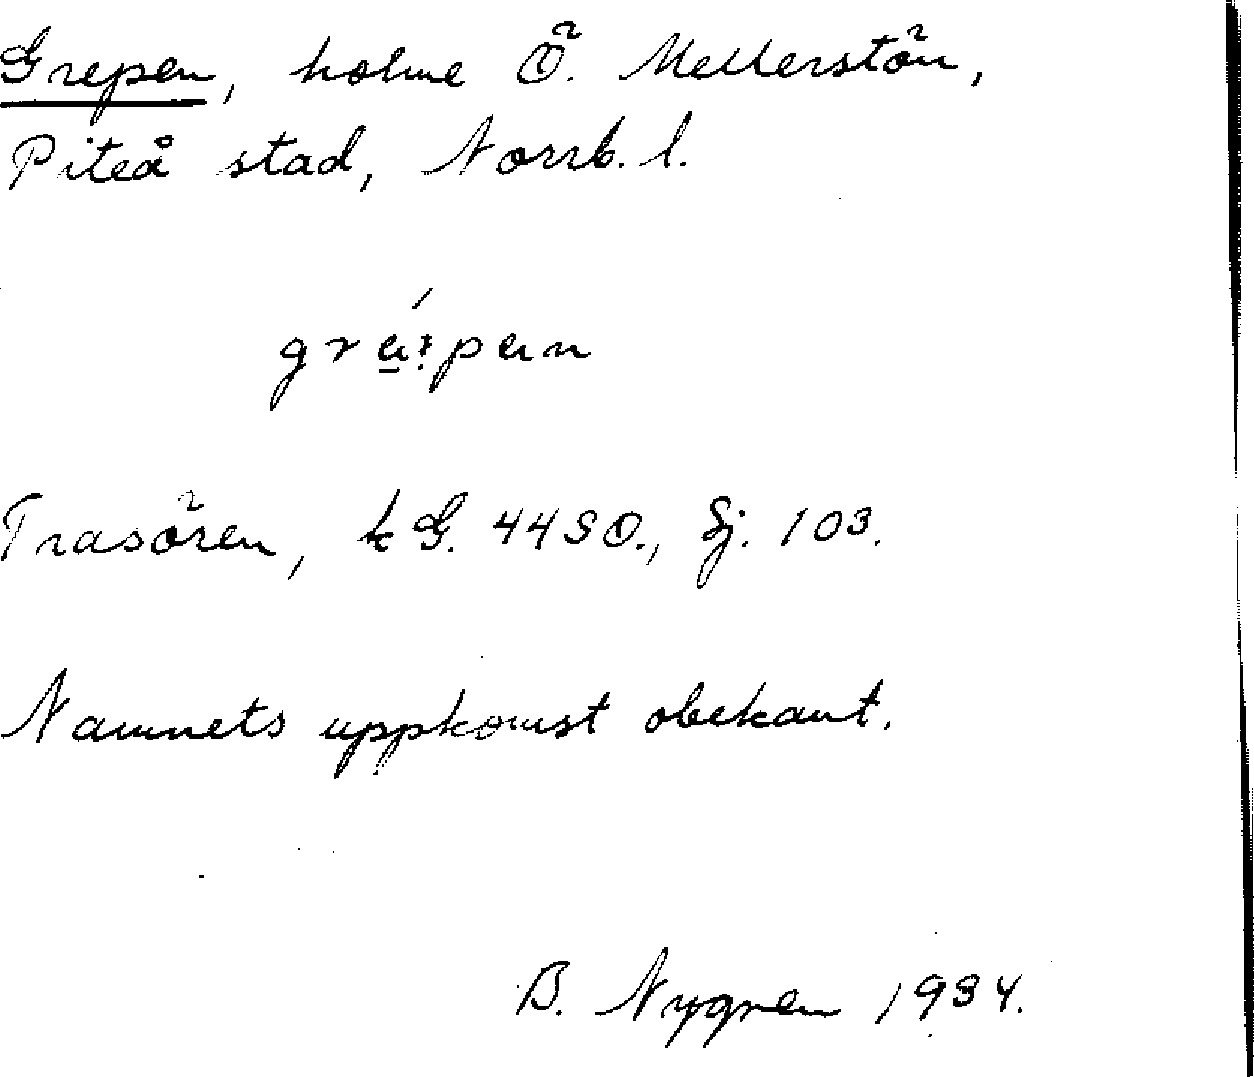 Grepen, holme Ö. Mellerstön,
Piteå stad, Norrb. l.
Trasören, kG. 44SO., Sj. 103.
Namnets uppkomst obekant.
B. Nygren 1934.